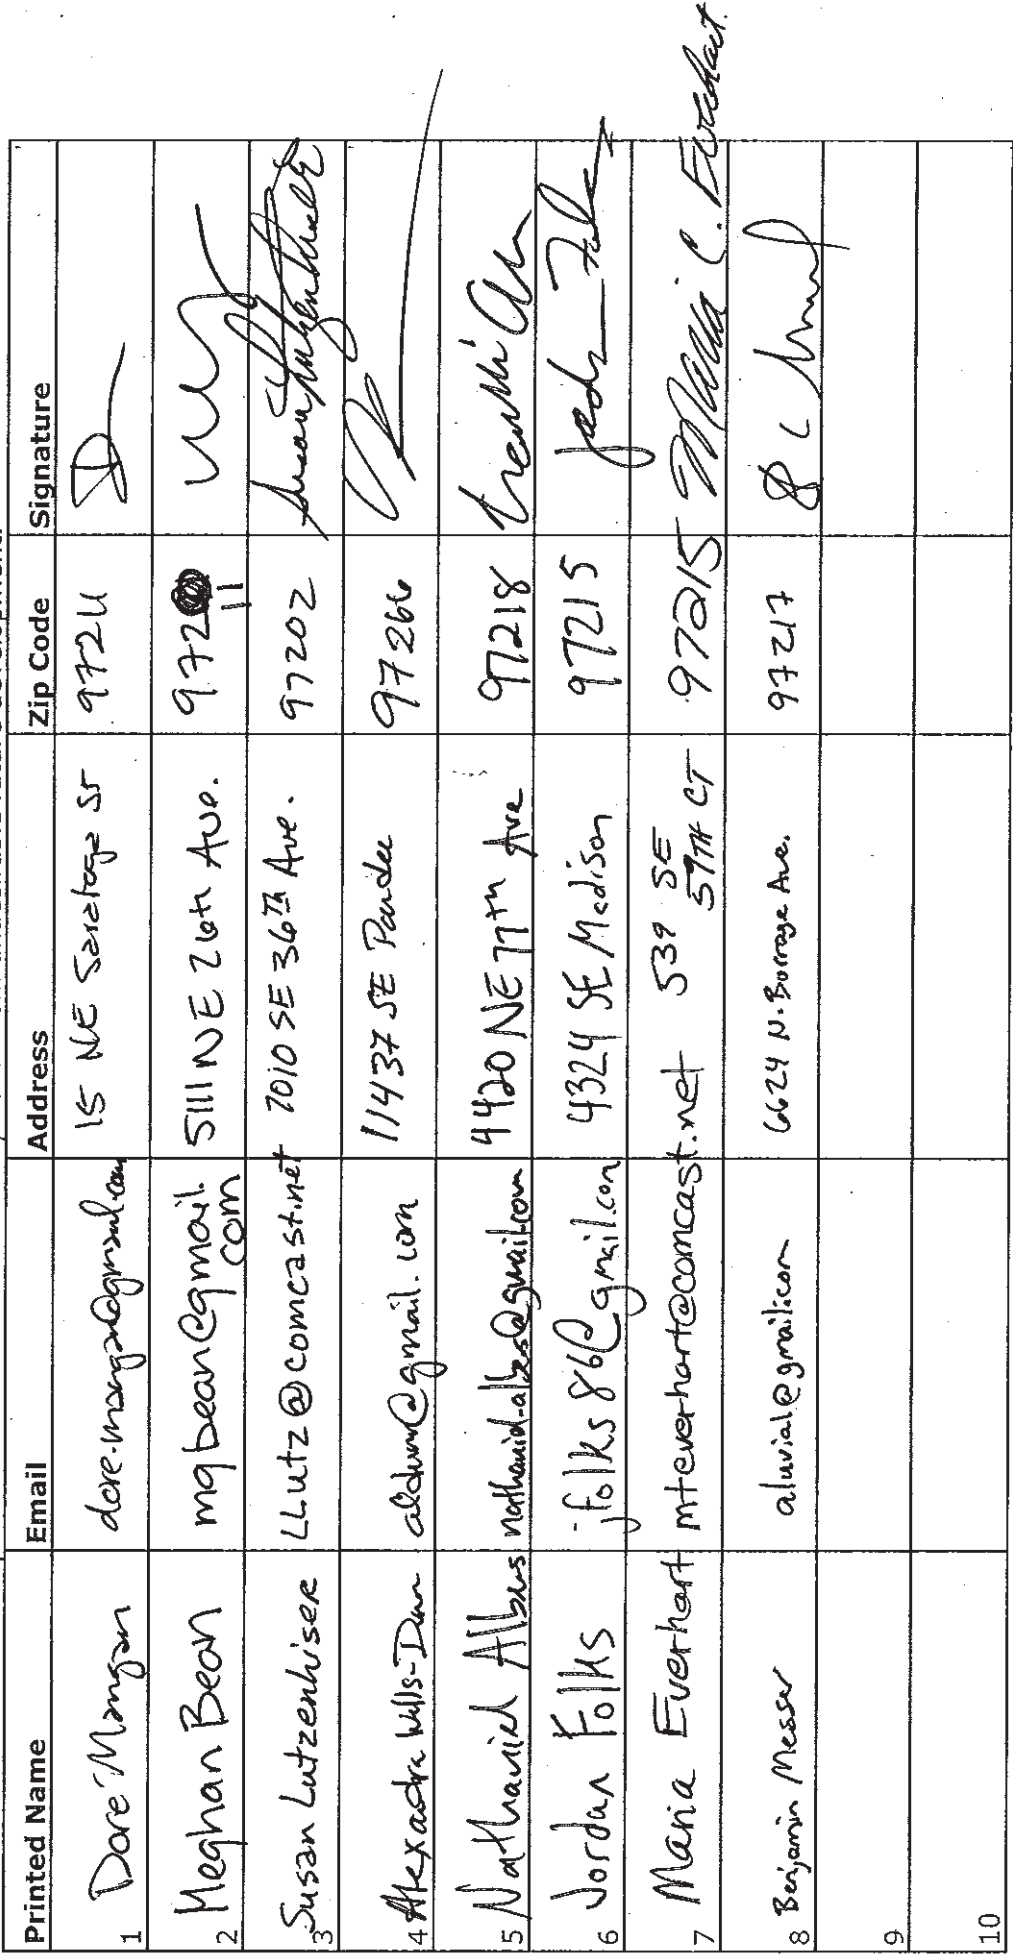 Printed Name Email Address Zip Code Signature
1 Dore Mangan dore.mangan@gmail.com 15 NE Saratoga St 97211
2 Meghan Bean mgbean@gmail. 5111 NE 26th Ave. 972
com 11
3 Susan Lutzenhiser LLutz@comcast.net 7010 SE 36TH Ave. 97202
4 Alexadra Wills-Dunn @gmail.com 11437 SE 97266
5 Nathaniel Albus nathaniel.albus@gmail.com 4420 NE 77th Ave 97218
6 Jordan Folks jfolks86@gmail.com 4324 SE Madison 97215
7 Maria Everhart mteverhart@comcast.net 539 SE 97215 Maria C. Everhart
57TH CT
8 Benjamin Messer aluvial@gmail.com 6624 N. Borrage Ave. 97217
9
10